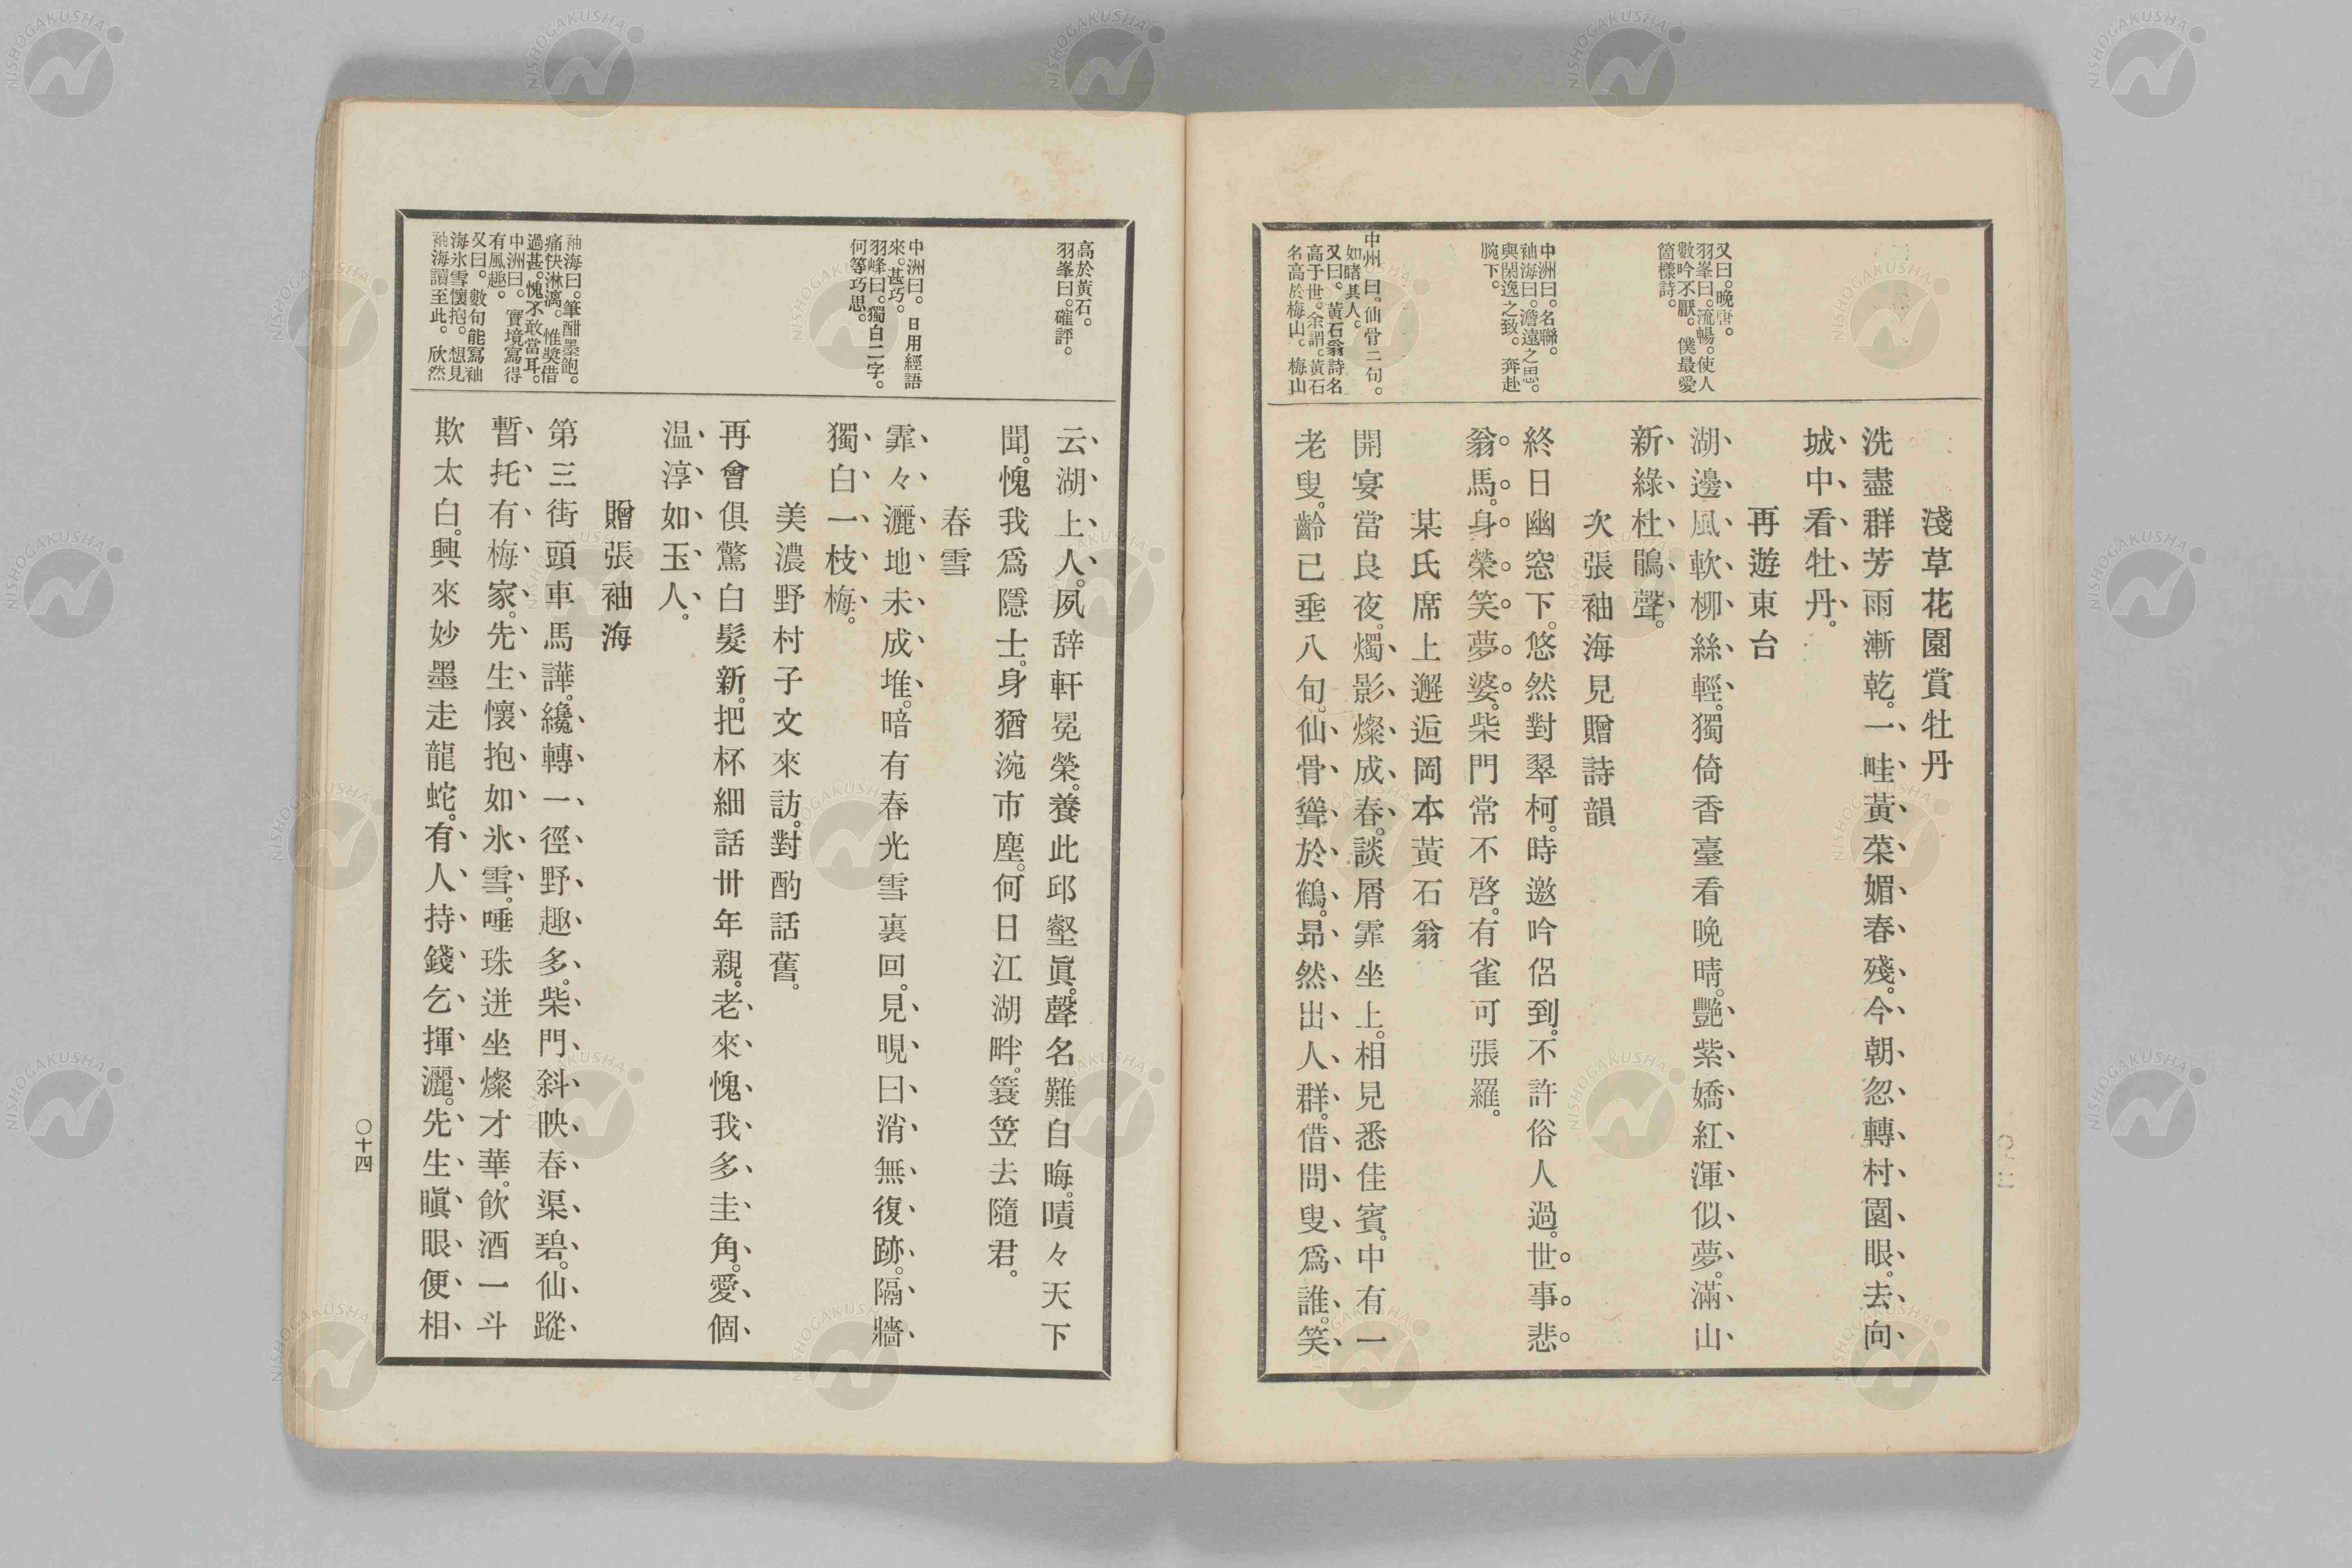 又曰。晚唐。
羽峯曰。流暢。使人
數吟不厭。僕最愛
箇樣詩。
中洲曰。名聯。
袖海曰。澹遠之思。
與閑逸之致。奔赴
腕下。
中州曰。仙骨二句。
如睹其人。
又曰。黃石翁詩名
高于世。余謂。黃石
名高於梅山。梅山
淺草花園賞牡丹
洗盡群芳雨漸乾。一畦黃菜媚春殘。今朝忽轉村園眼。去向
城中看牡丹。
再遊東台
湖邊風軟柳絲輕。獨倚香臺看晚晴。艷紫嬌紅渾似夢。滿山
新綠杜鵑聲。
次張袖海見贈詩韻
終日幽窓下。悠然對翠柯。時邀吟侶到。不許俗人過。世事悲
翁馬。身榮笑夢婆。柴門常不啓。有雀可張羅。
某氏席上邂逅岡本黃石翁
開宴當良夜。燭影燦成春。談屑霏坐上。相見悉佳賓。中有一
老叟。齡已垂八旬。仙骨聳於鶴。昻然出人群。借問叟爲誰。笑
高於黃石。
羽峯曰。確評。
中洲曰。日用經語
來。甚巧。
羽峰曰。獨白二字。
何等巧思。
袖海曰。筆酣墨飽。
痛快淋漓。惟獎借
過甚。愧不敢當耳。
中洲曰。實境寫得
有風趣。
又曰。數句能寫袖
海氷雪懷抱。想見
袖海讀至此。欣然
云湖上人。夙辞軒冕榮。養此邱壑眞。聲名難自晦。嘖々天下
聞。愧我爲隱士。身猶涴市塵。何日江湖畔。簑笠去隨君。
春雪
霏々灑地未成堆。暗有春光雪裏回。見晛曰消無復跡。隔牆
獨白一枝梅。
美濃野村子文來訪。對酌話舊。
再會俱驚白髮新。把杯細話卅年親。老來愧我多圭角。愛個
温淳如玉人。
贈張袖海
第三街頭車馬譁。纔轉一徑野趣多。柴門斜映春渠碧。仙蹤
暫托有梅家。先生懷抱如氷雪。唾珠迸坐燦才華。飮酒一斗
欺太白。興來妙墨走龍蛇。有人持錢乞揮灑。先生瞋眼便相
〇十四
NISHOGAKUSHA